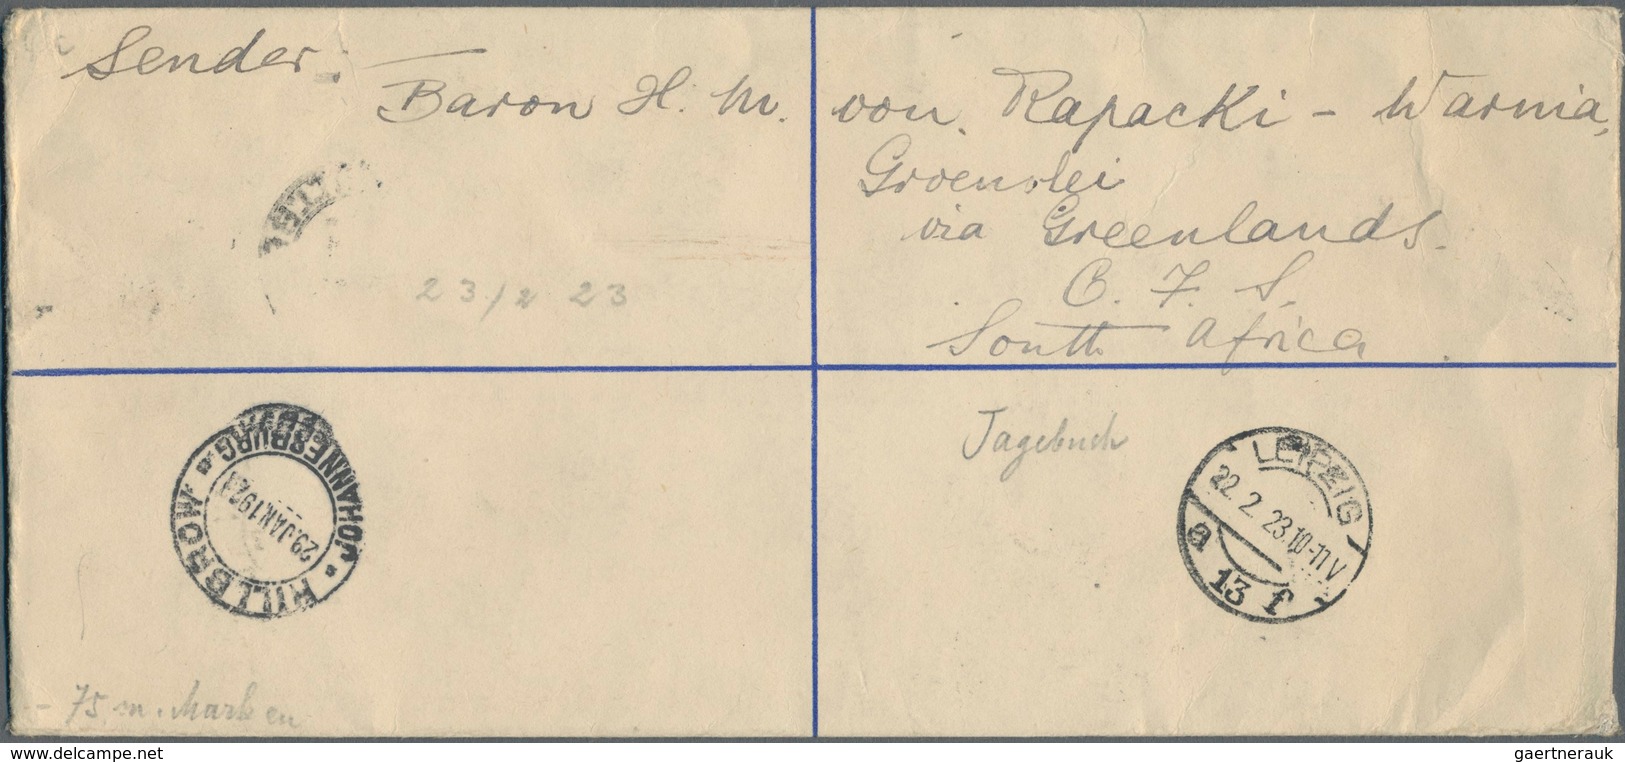 Sender:
Baron H. M. von Rapacki - Warnia,
Groenvlei
via Greenlands.
O. F. S.
South Africa
23/2 23
JOHANNESBURG
HILLBROW
29.JAN.1923
Tagebuch
LEIPZIG
22. 2. 23.10-11V
a
13 f
- 75 m. Marken
delcampe.net
gaertnerauk